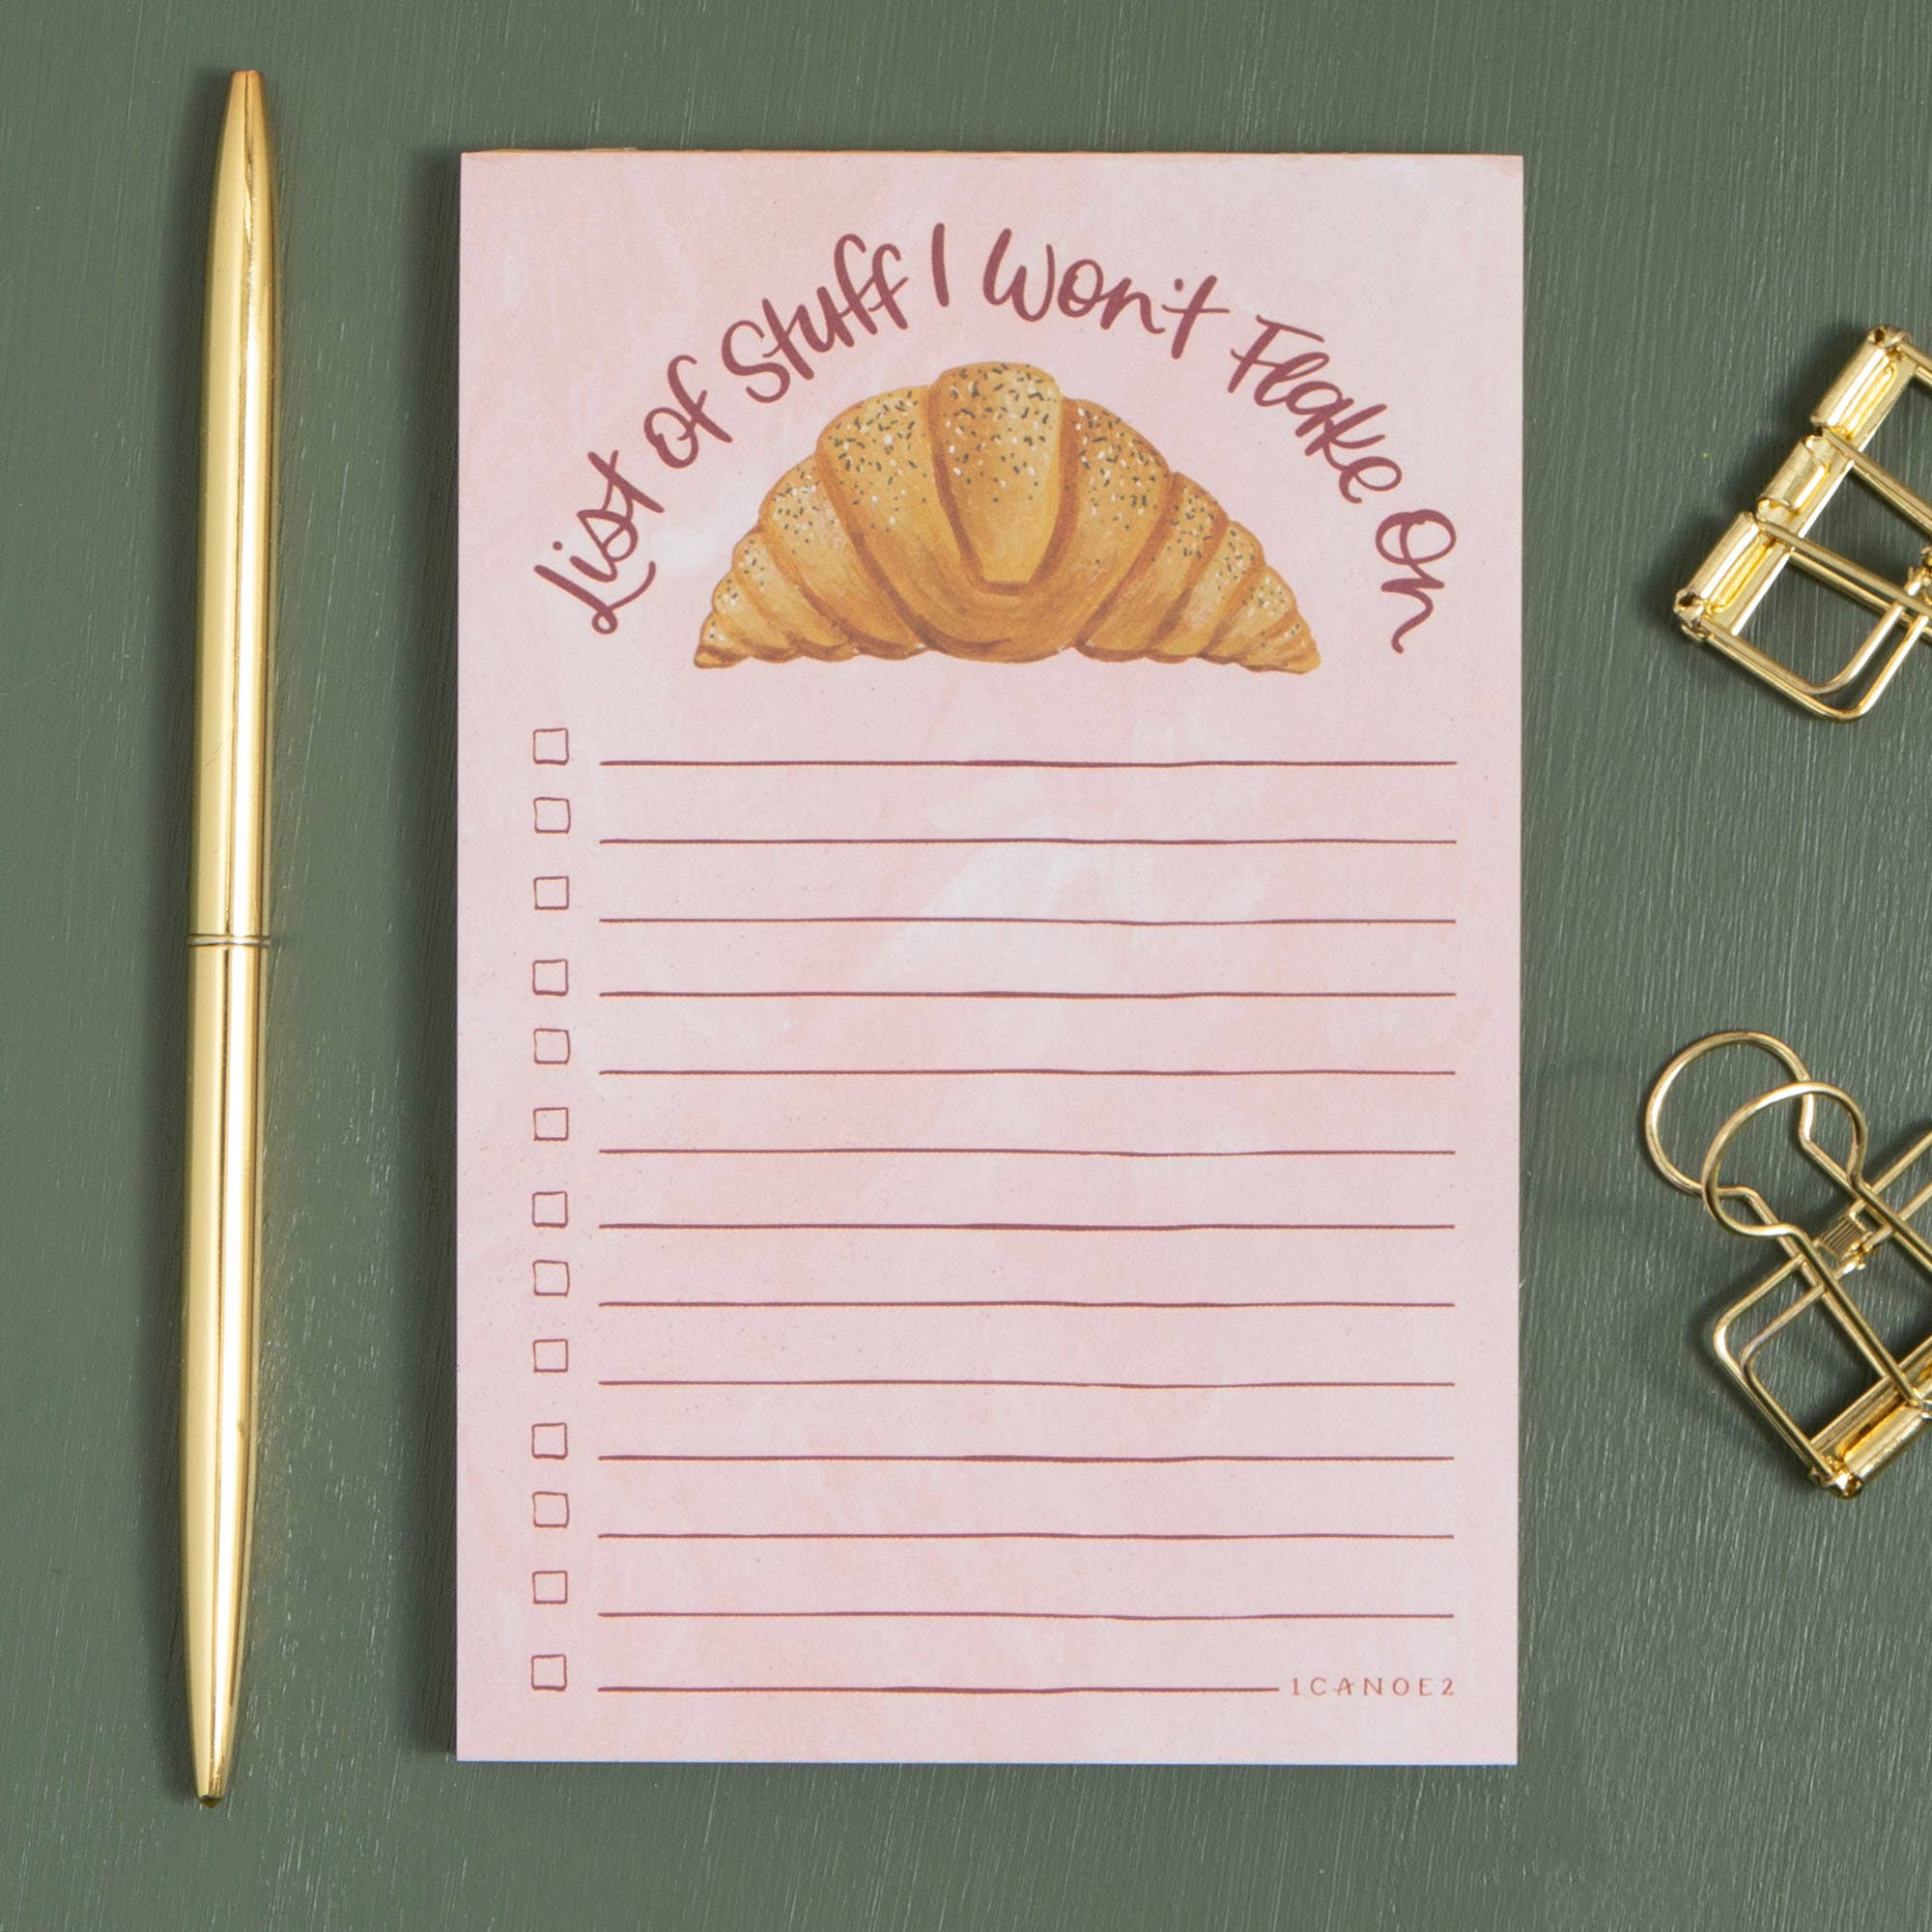 List of Stuff I Won't Flake On
1CANOE2